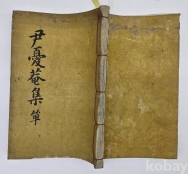 尹憂菴集單
kobay